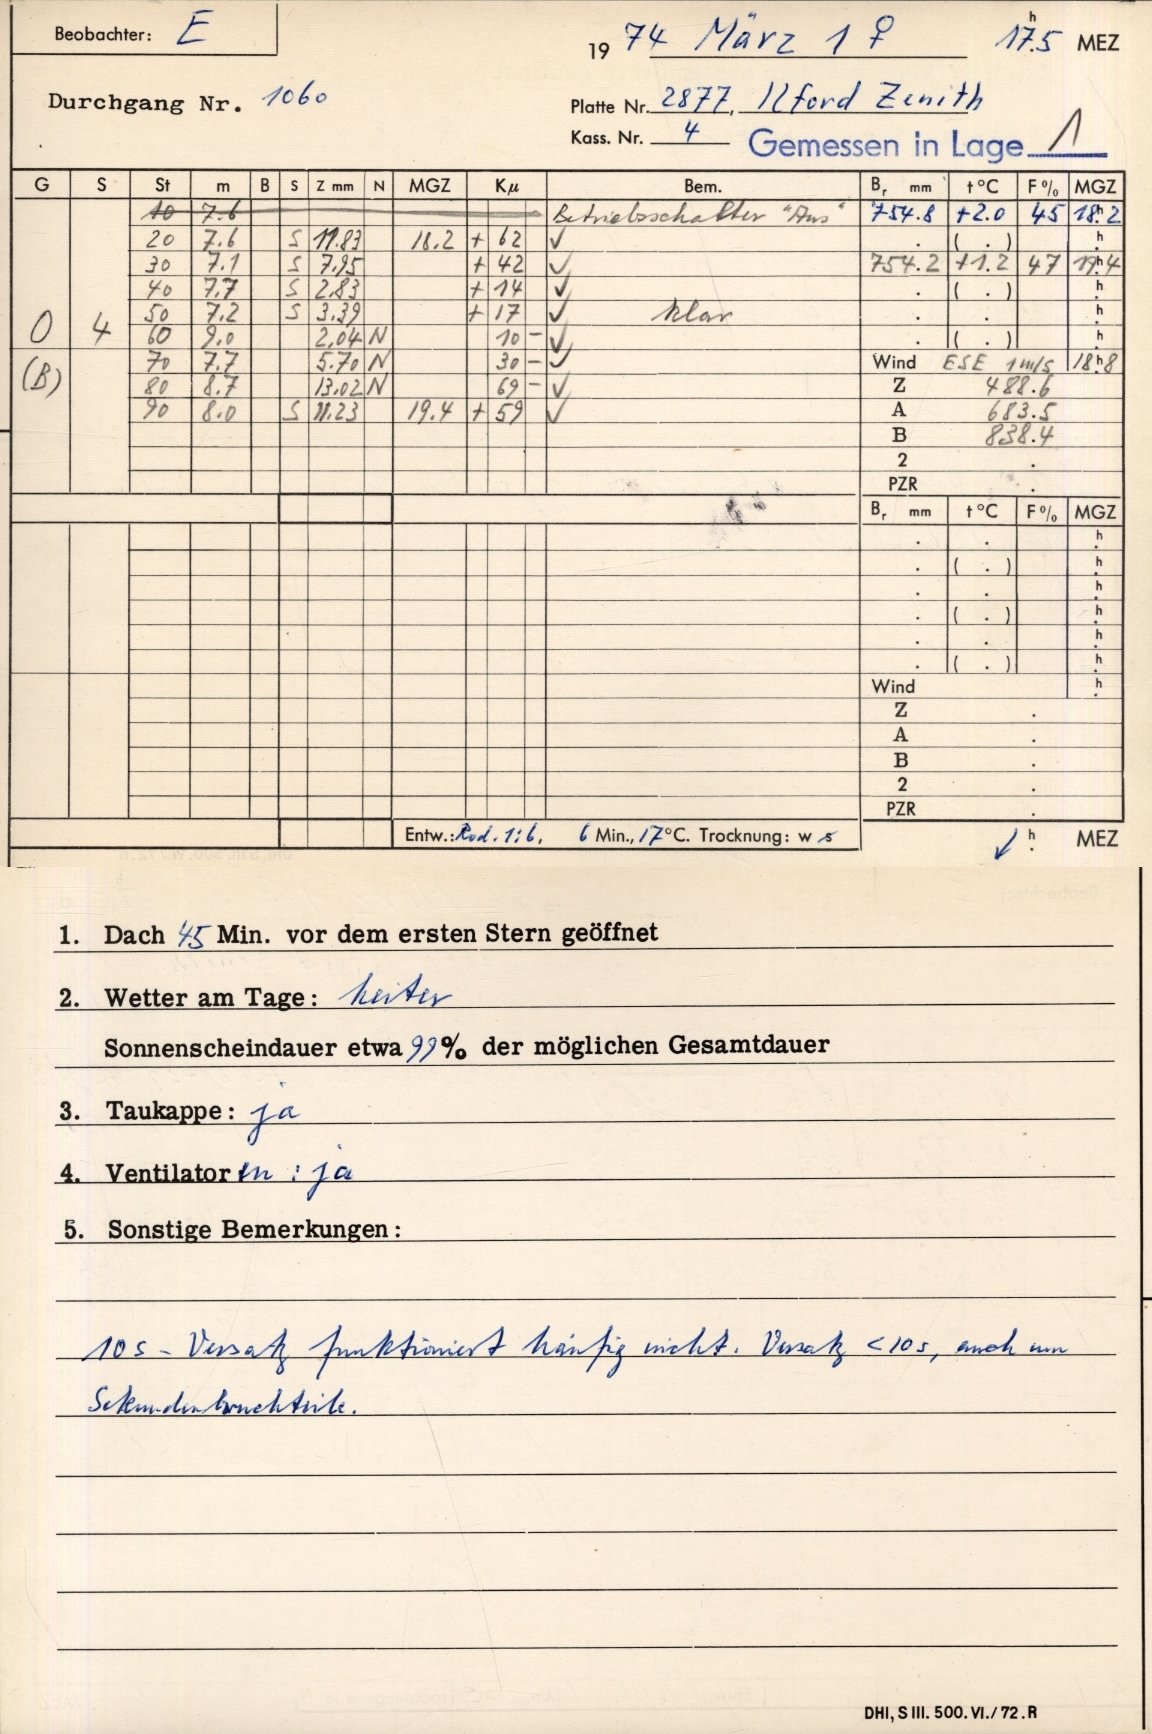 Beobachter: E
19 74 März 1 ♀ 17.5 h MEZ
Durchgang Nr. 1060
Platte Nr. 2877, Ilford Zenith
Kass. Nr. 4 Gemessen in Lage 1
G S St m B S Z mm N MGZ Kμ Bem. Br mm t°C F% MGZ
10 7.6 Betriebsschalter "Aus" 754.8 +2.0 45 18.2 h
20 7.6 S 11.83 18.2 + 62 ✓ . ( . ) h
30 7.1 S 7.95 + 42 ✓ 754.2 +1.2 47 19.4 h
40 7.7 S 2.83 + 14 ✓ . ( . ) h
0 4 50 7.2 S 3.39 + 17 ✓ klar . . h
60 9.0 2.04 N 10 - ✓ . ( . ) h
(B) 70 7.7 5.70 N 30 - ✓ Wind ESE 1m/s 18.8 h
80 8.7 13.02 N 69 - ✓ Z 488.6
90 8.0 S 11.23 19.4 + 59 ✓ A 683.5
B 838.4
2 .
PZR .
Br mm t°C F% MGZ
. . h
. ( . ) h
. . h
. ( . ) h
. . h
. ( . ) h
Wind h
Z .
A .
B .
2 .
PZR .
Entw.: Rod. 1:6, 6 Min., 17°C. Trocknung: w s ✓ h MEZ
1. Dach 45 Min. vor dem ersten Stern geöffnet
2. Wetter am Tage: heiter
Sonnenscheindauer etwa 99% der möglichen Gesamtdauer
3. Taukappe: ja
4. Ventilatoren: ja
5. Sonstige Bemerkungen:
10 s - Versatz funktioniert häufig nicht. Versatz < 10 s, auch um
Sekundenbruchteile.
DHI, S III. 500. VI./72. R